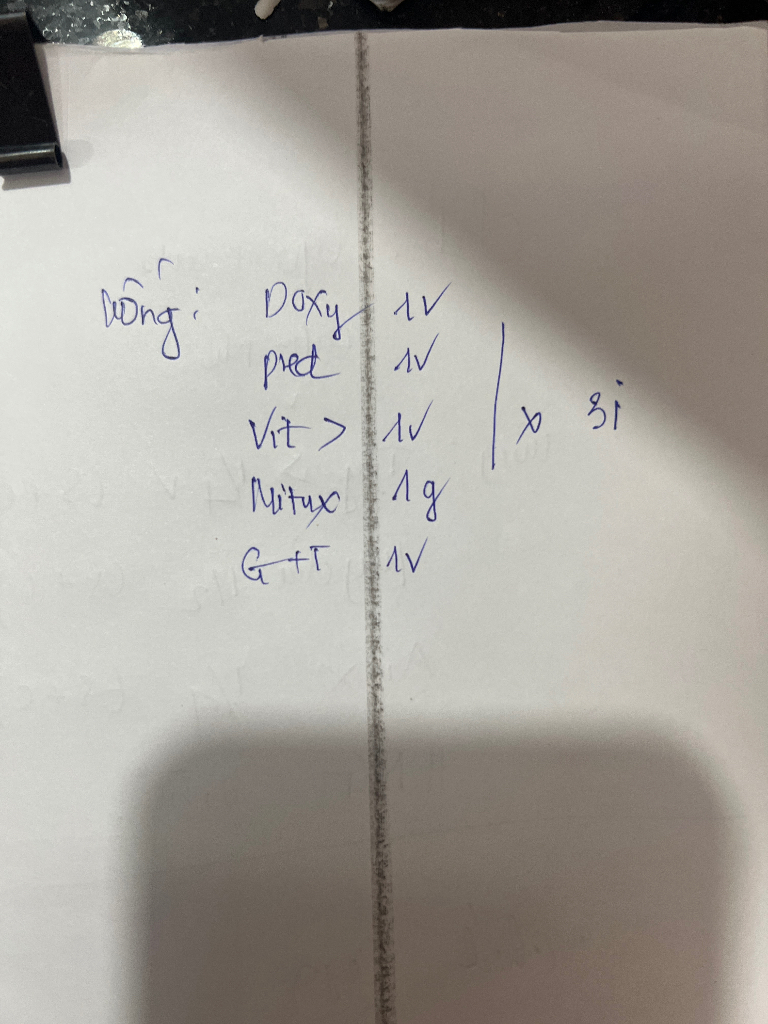 uống: Doxy 1V
pred 1V
Vit > 1V
Mitux 1g
G+T 1V
x 3i